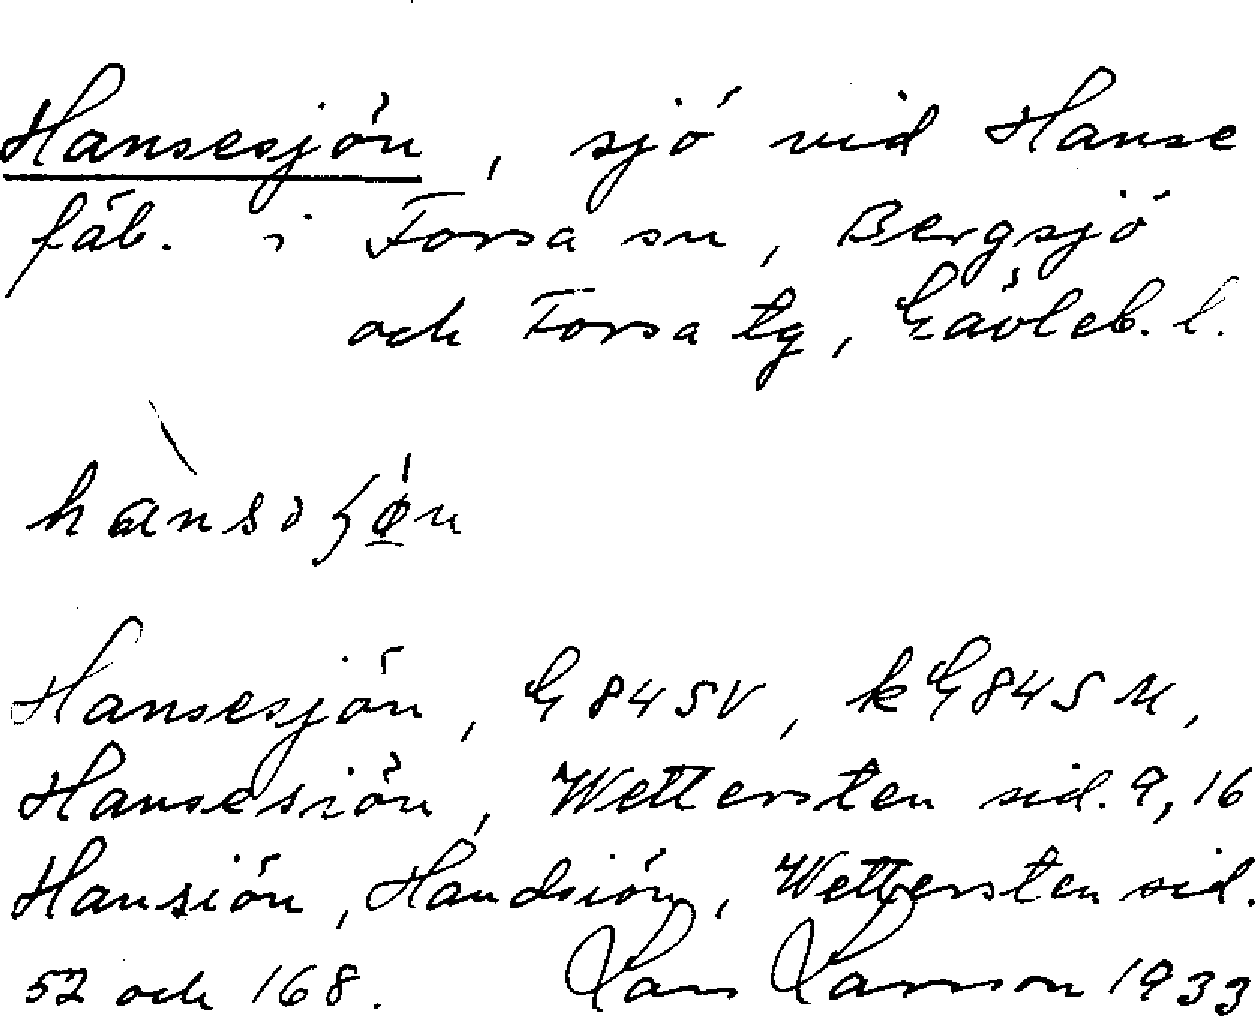 Hansesjön, sjö vid Hanse
fäb. i Forsa sn, Bergsjö
och Forsa tg, Gävleb. l.
Hansesjön, G 84 SV, kG 84 S M,
Hansesiön, Wettersten sid. 9, 16
Hansiön, Handsiön, Wettersten sid.
52 och 168. Lars Larsson 1933